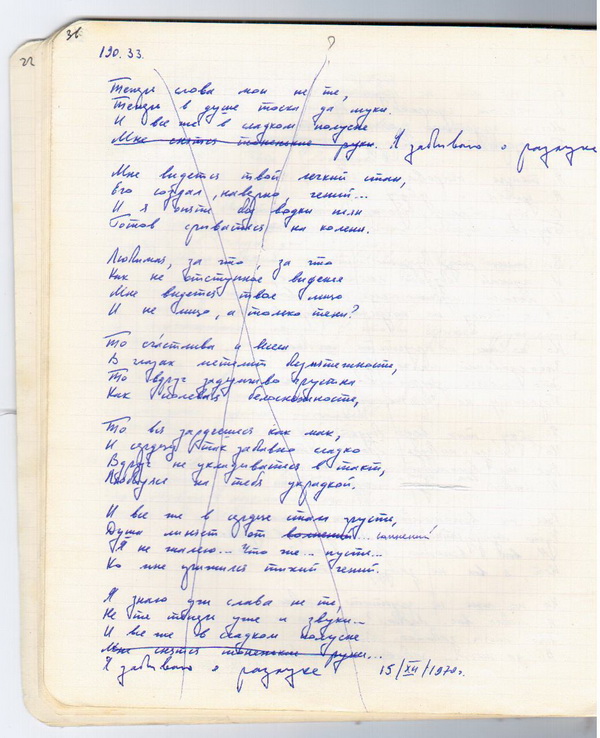 22
31.
190. 33.
Теперь слова мои не те,
Теперь в душе тоска да муки.
И все же в сладком полусне
Мне снятся тоненькие руки. Я забываю о разлуке
Мне видется твой легкий стан,
Его создал, наверно гений...
И я опять без водки пьян
Готов срываться на колени.
Любимая, за что, за что
Как не отступное виденье
Мне видется твое лицо
И не лицо, а только тени?
То счастлива и
В глазах безмятежность,
То вдруг задумчиво грустна
Как полевая белоснежность,
То вся зардеешся как мак,
И сердцу так забавно сладко
Вдруг не укладываться в такт,
Любуясь на тебя украдкой.
И все же в сердце стали грусти,
Душа от волнений... сомнений
Я не жалею... Что же... пусть...
Ко мне тихий гений.
Я знаю уж слова не те,
Не те теперь уже и звуки...
И все же в сладком полусне
Мне снятся тоненькие руки...
Я забываю о разлуке 15/XII/1970г.